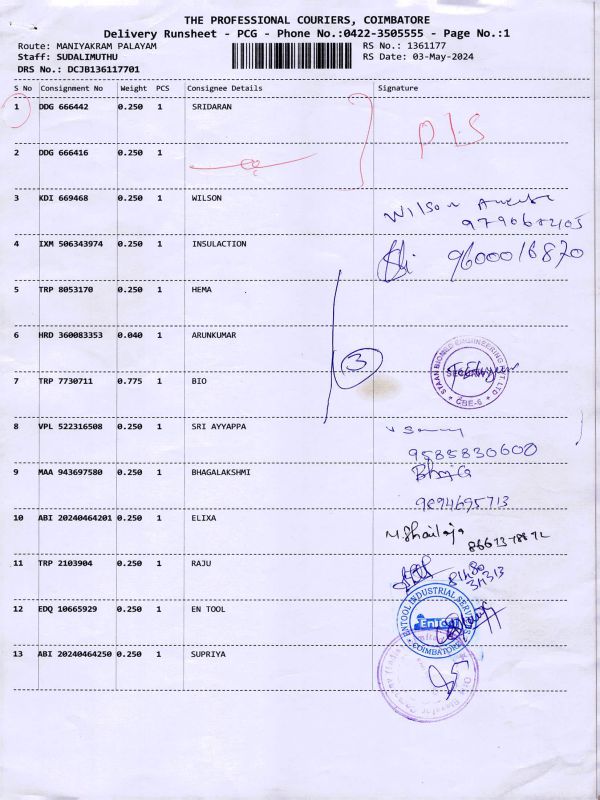 THE PROFESSIONAL COURIERS, COIMBATORE
Delivery Runsheet - PCG - Phone No.:0422-3505555 - Page No.:1
Route: MANIYAKRAM PALAYAM RS No.: 1361177
Staff: SUDALIMUTHU RS Date: 03-May-2024
DRS No.: DCJB136117701
S No Consignment No Weight PCS Consignee Details Signature
1 DDG 666442 0.250 1 SRIDARAN
2 DDG 666416 0.250 1
3 KDI 669468 0.250 1 WILSON
Wilson
4 IXM 506343974 0.250 1 INSULACTION
9600016870
5 TRP 8053170 0.250 1 HEMA
6 HRD 360083353 0.040 1 ARUNKUMAR
3
7 TRP 7730711 0.775 1 BIO
CBE-6
8 VPL 522316508 0.250 1 SRI AYYAPPA
9585830600
9 MAA 943697580 0.250 1 BHAGALAKSHMI
9894695713
10 ABI 20240464201 0.250 1 ELIXA
M. Shailaja
11 TRP 2103904 0.250 1 RAJU
12 EDQ 10665929 0.250 1 EN TOOL
ENTOOL INDUSTRIAL SERVICES
EnTool
COIMBATORE
13 ABI 20240464250 0.250 1 SUPRIYA